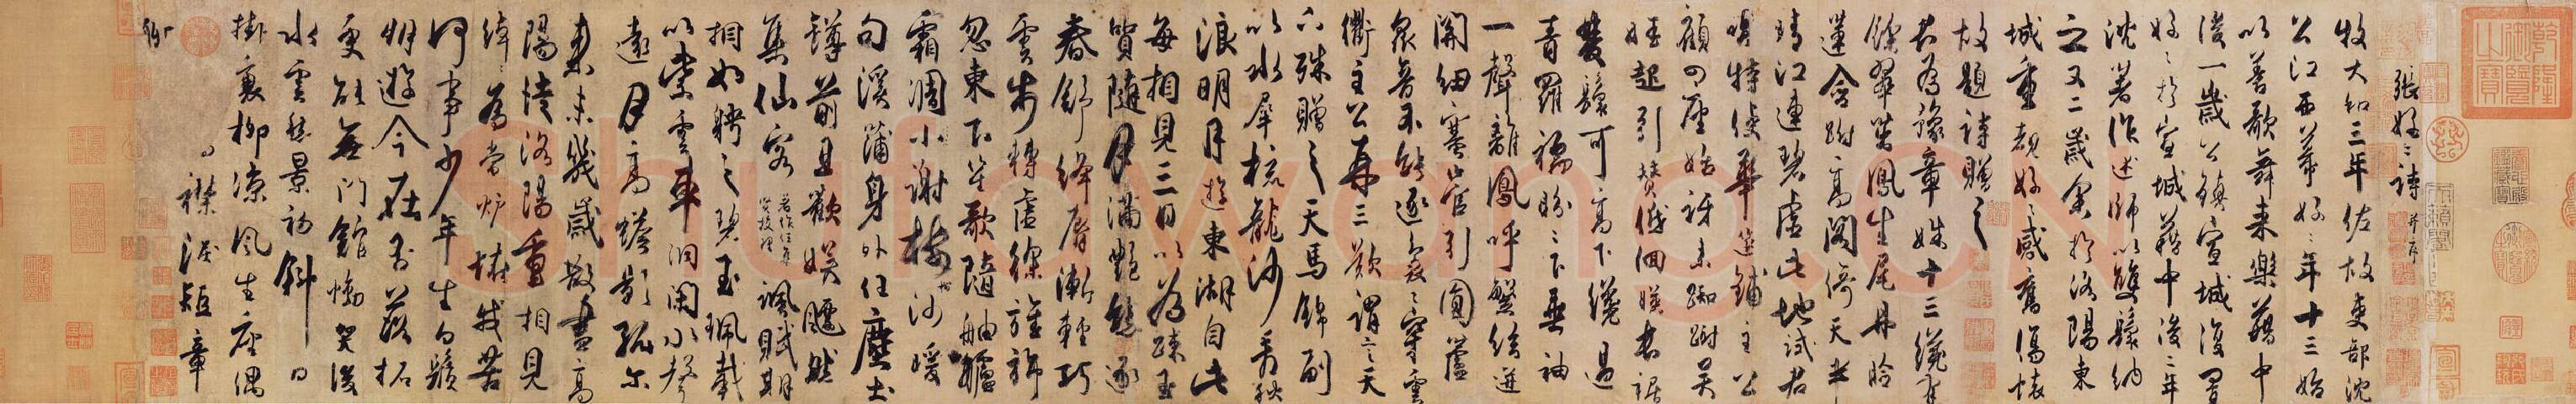 張好好詩并序
牧大和三年佐故吏部沈
公江西幕好好年十三始
以善歌舞來樂籍中
後一歲公鎮宣城復置
好好於宣城籍中後二年
沈著作述師以雙鬟納
之又二歲余於洛陽東
城重覩好好感舊傷懷
故題詩贈之
君為豫章姝十三纔有
餘翠茁鳳生尾丹臉
蓮含跗高閣倚天半
晴江連碧虛此地試君
唱特使華筵鋪主公
顧四座始訝來踟躕吳
娃起引贊低佪映長裾
雙鬟可高下纔過
青羅襦盼盼下垂袖
一聲離鳳呼繁絃迸
關紐塞管引圓蘆
衆音不能逐裊裊穿雲
衢主公再三歎謂言天
下殊贈之天馬錦副
以水犀梳龍沙看秋
浪明月遊東湖自此
每相見三日以為疎玉
質隨月滿艷態逐
春舒絳脣漸輕巧
雲步轉虛徐旌旆
忽東下笙歌隨舳艫
霜凋小謝樓沙暖
句溪蒲身外任塵土
罇前且歡娛飄然
集仙客著作任集賢校理諷賦期
相如聘之碧玉珮載
以紫雲車洞閉水聲
遠月高蟾影孤爾
來未幾歲散盡高
陽徒洛陽重相見
綽綽為當爐怪我苦
何事少年生白鬚
朋遊今在否落拓
更能無門館慟哭後
水雲愁景初斜日
掛衰柳涼風生座隅
襟淚短章
聊
乾隆御覽之寶
Shufayun.CN